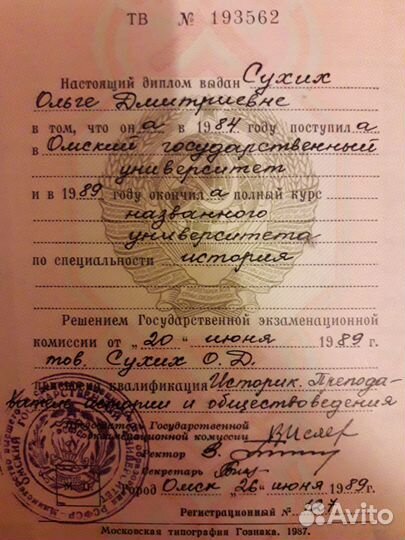 ТВ № 193562
Настоящий диплом выдан Сухих
Ольге Дмитриевне
в том, что она в 1984 году поступила
в Омский государственный
университет
и в 1989 году окончила полный курс
названного
университета
по специальности история
Решением Государственной экзаменационной
комиссии от „20" июня 1989 г.
тов. Сухих О. Д.
присвоена квалификация Историк. Препода-
ватель истории и обществоведения
Председатель Государственной
экзаменационной комиссии
Ректор
Секретарь
Город Омск „26" июня 1989 г.
Регистрационный №
Московская типография Гознака. 1987.
Avito